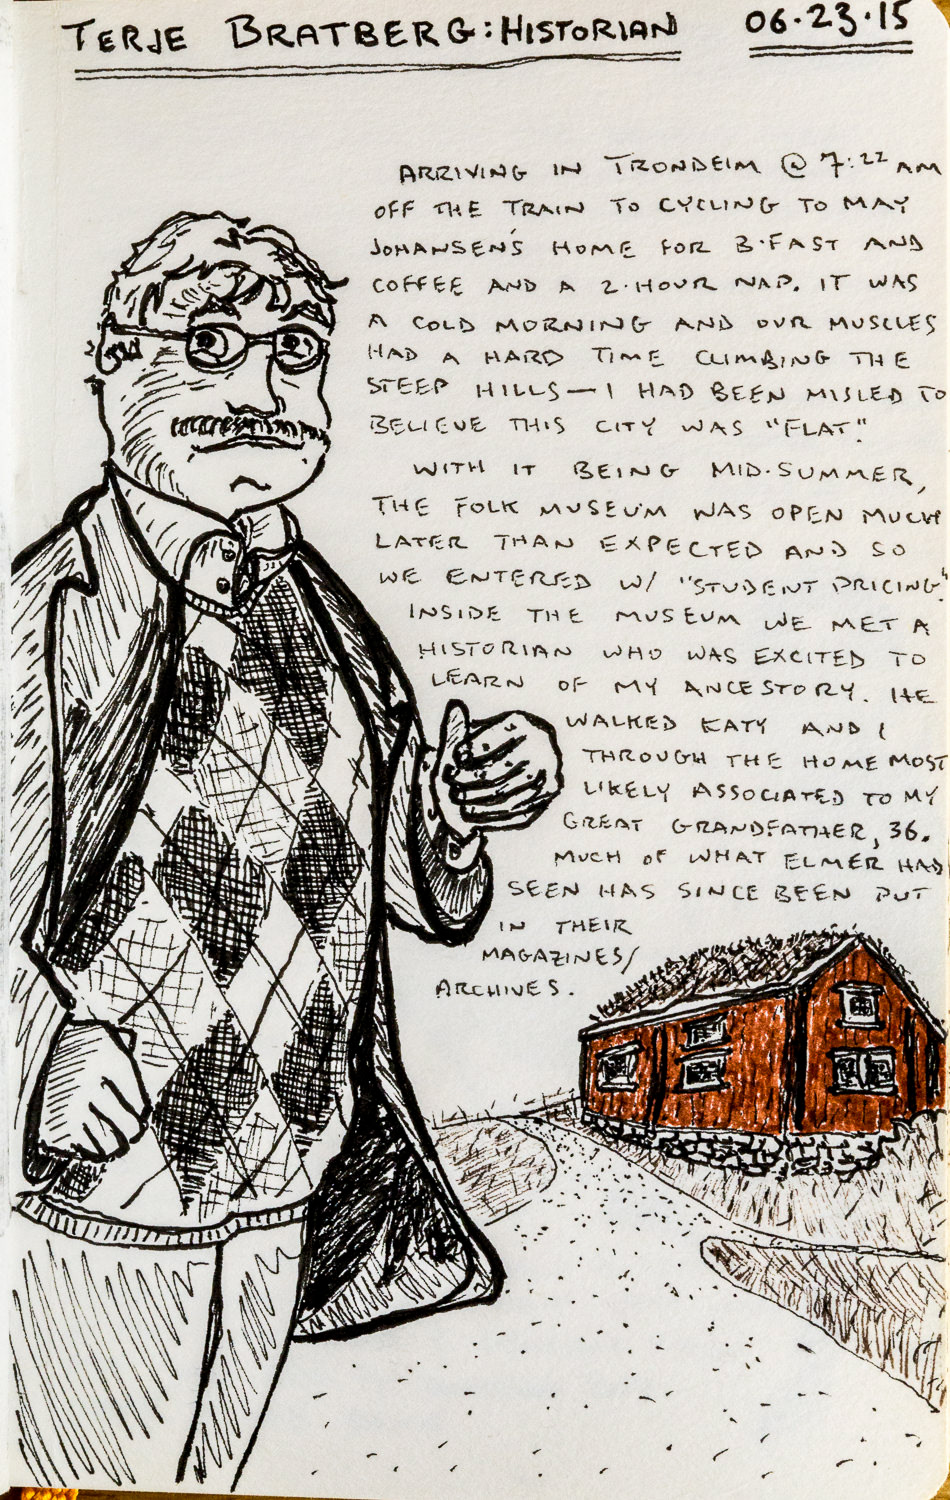 TERJE BRATBERG: HISTORIAN 06.23.15
ARRIVING IN TRONDEIM @ 7:22 AM
OFF THE TRAIN TO CYCLING TO MAY
JOHANSEN'S HOME FOR B·FAST AND
COFFEE AND A 2·HOUR NAP. IT WAS
A COLD MORNING AND OUR MUSCLES
HAD A HARD TIME CLIMBING THE
STEEP HILLS — I HAD BEEN MISLED TO
BELIEVE THIS CITY WAS "FLAT."
WITH IT BEING MID·SUMMER,
THE FOLK MUSEUM WAS OPEN MUCH
LATER THAN EXPECTED AND SO
WE ENTERED W/ "STUDENT PRICING."
INSIDE THE MUSEUM WE MET A
HISTORIAN WHO WAS EXCITED TO
LEARN OF MY ANCESTORY. HE
WALKED KATY AND I
THROUGH THE HOME MOST
LIKELY ASSOCIATED TO MY
GREAT GRANDFATHER, 36.
MUCH OF WHAT ELMER HAD
SEEN HAS SINCE BEEN PUT
IN THEIR
MAGAZINES/
ARCHIVES.